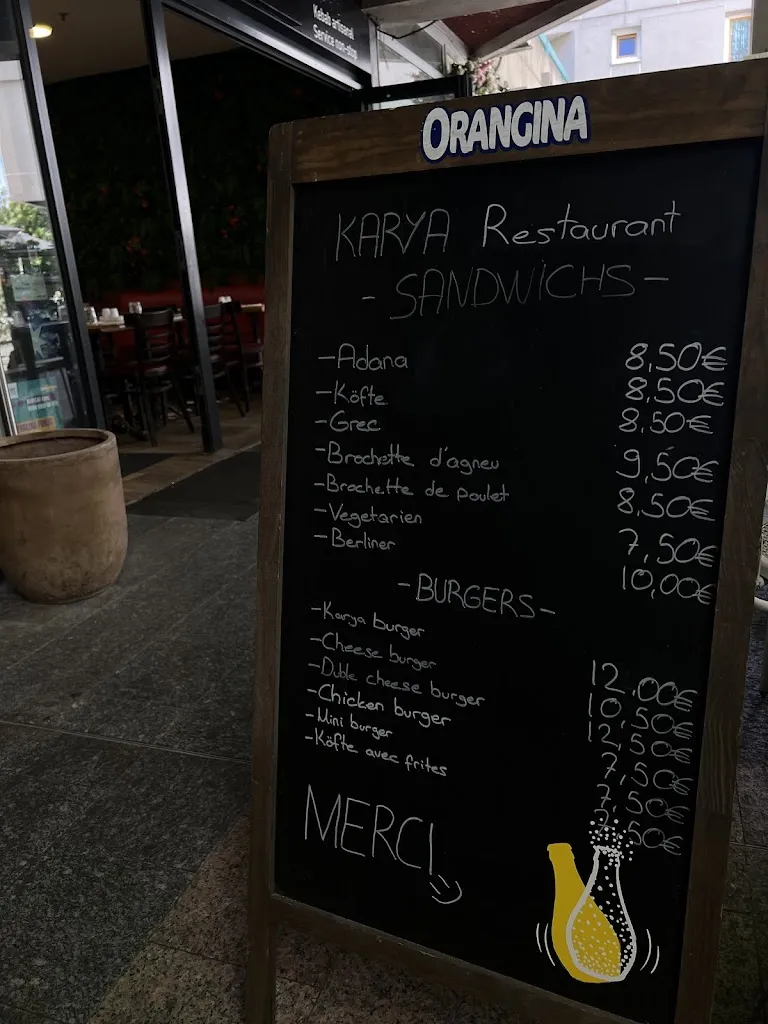 Kebab artisanal
Service non-stop
ORANGINA
KARYA Restaurant
- SANDWiCHS -
-Adana 8,50€
-Köfte 8,50€
-Grec 8,50€
-Brochette d'agneu 9,50€
-Brochette de poulet 8,50€
-Vegetarien 7,50€
-Berliner 10,00€
-BURGERS-
-Karya burger 12,00€
-Cheese burger 10,50€
-Duble cheese burger 12,50€
-Chicken burger 7,50€
-Mini burger 7,50€
-Köfte avec frites ,50€
MERCi